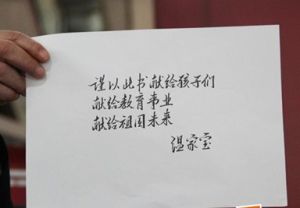 谨以此书献给孩子们
献给教育事业
献给祖国未来
温家宝